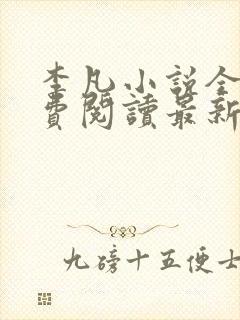 李凡小說全
費閱讀最新
九磅十五便士